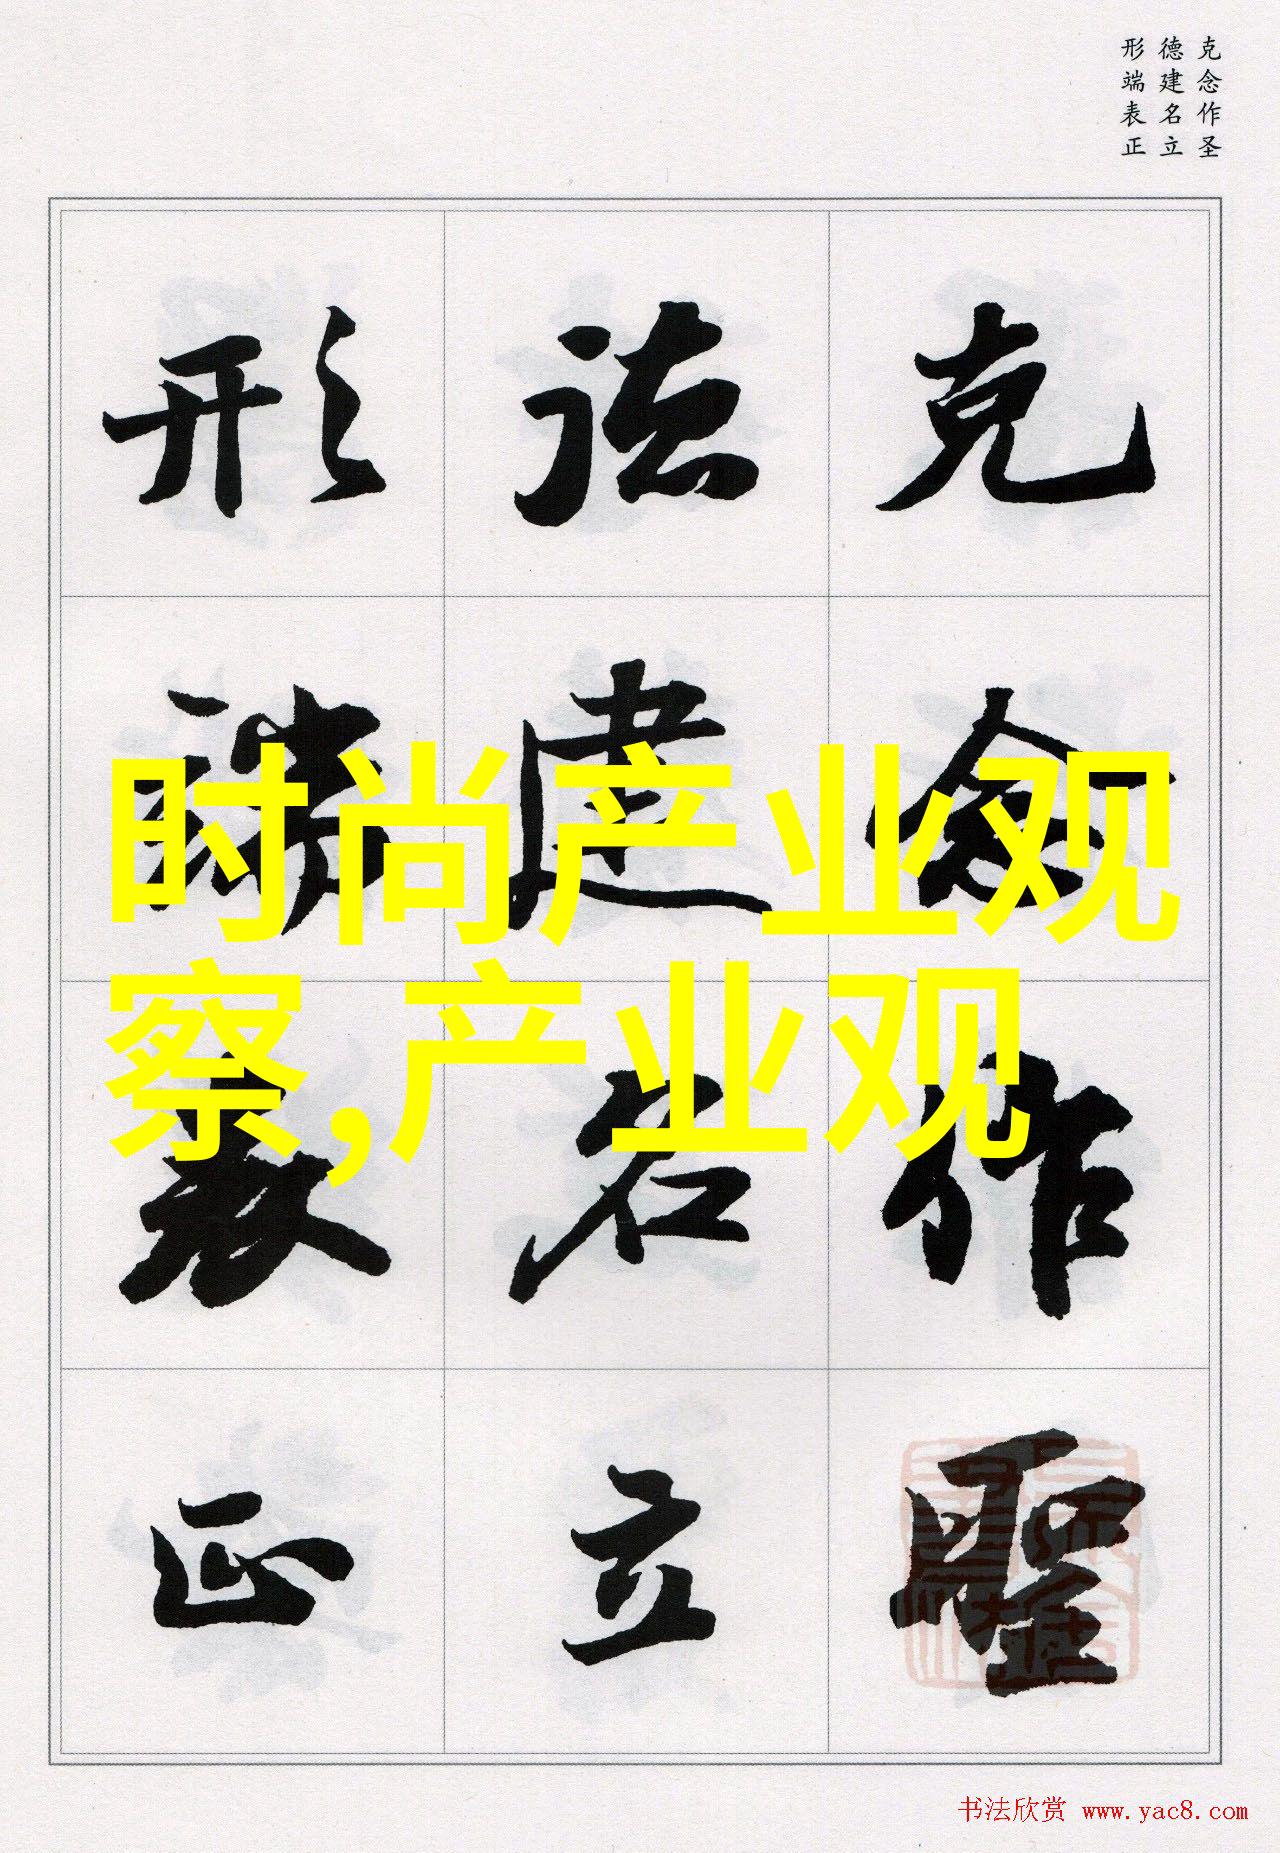 克念作圣
德建名立
形端表正
克念作聖
德建名立
形端表正
时尚产业观
察,产业观
书法欣赏 www.yac8.com